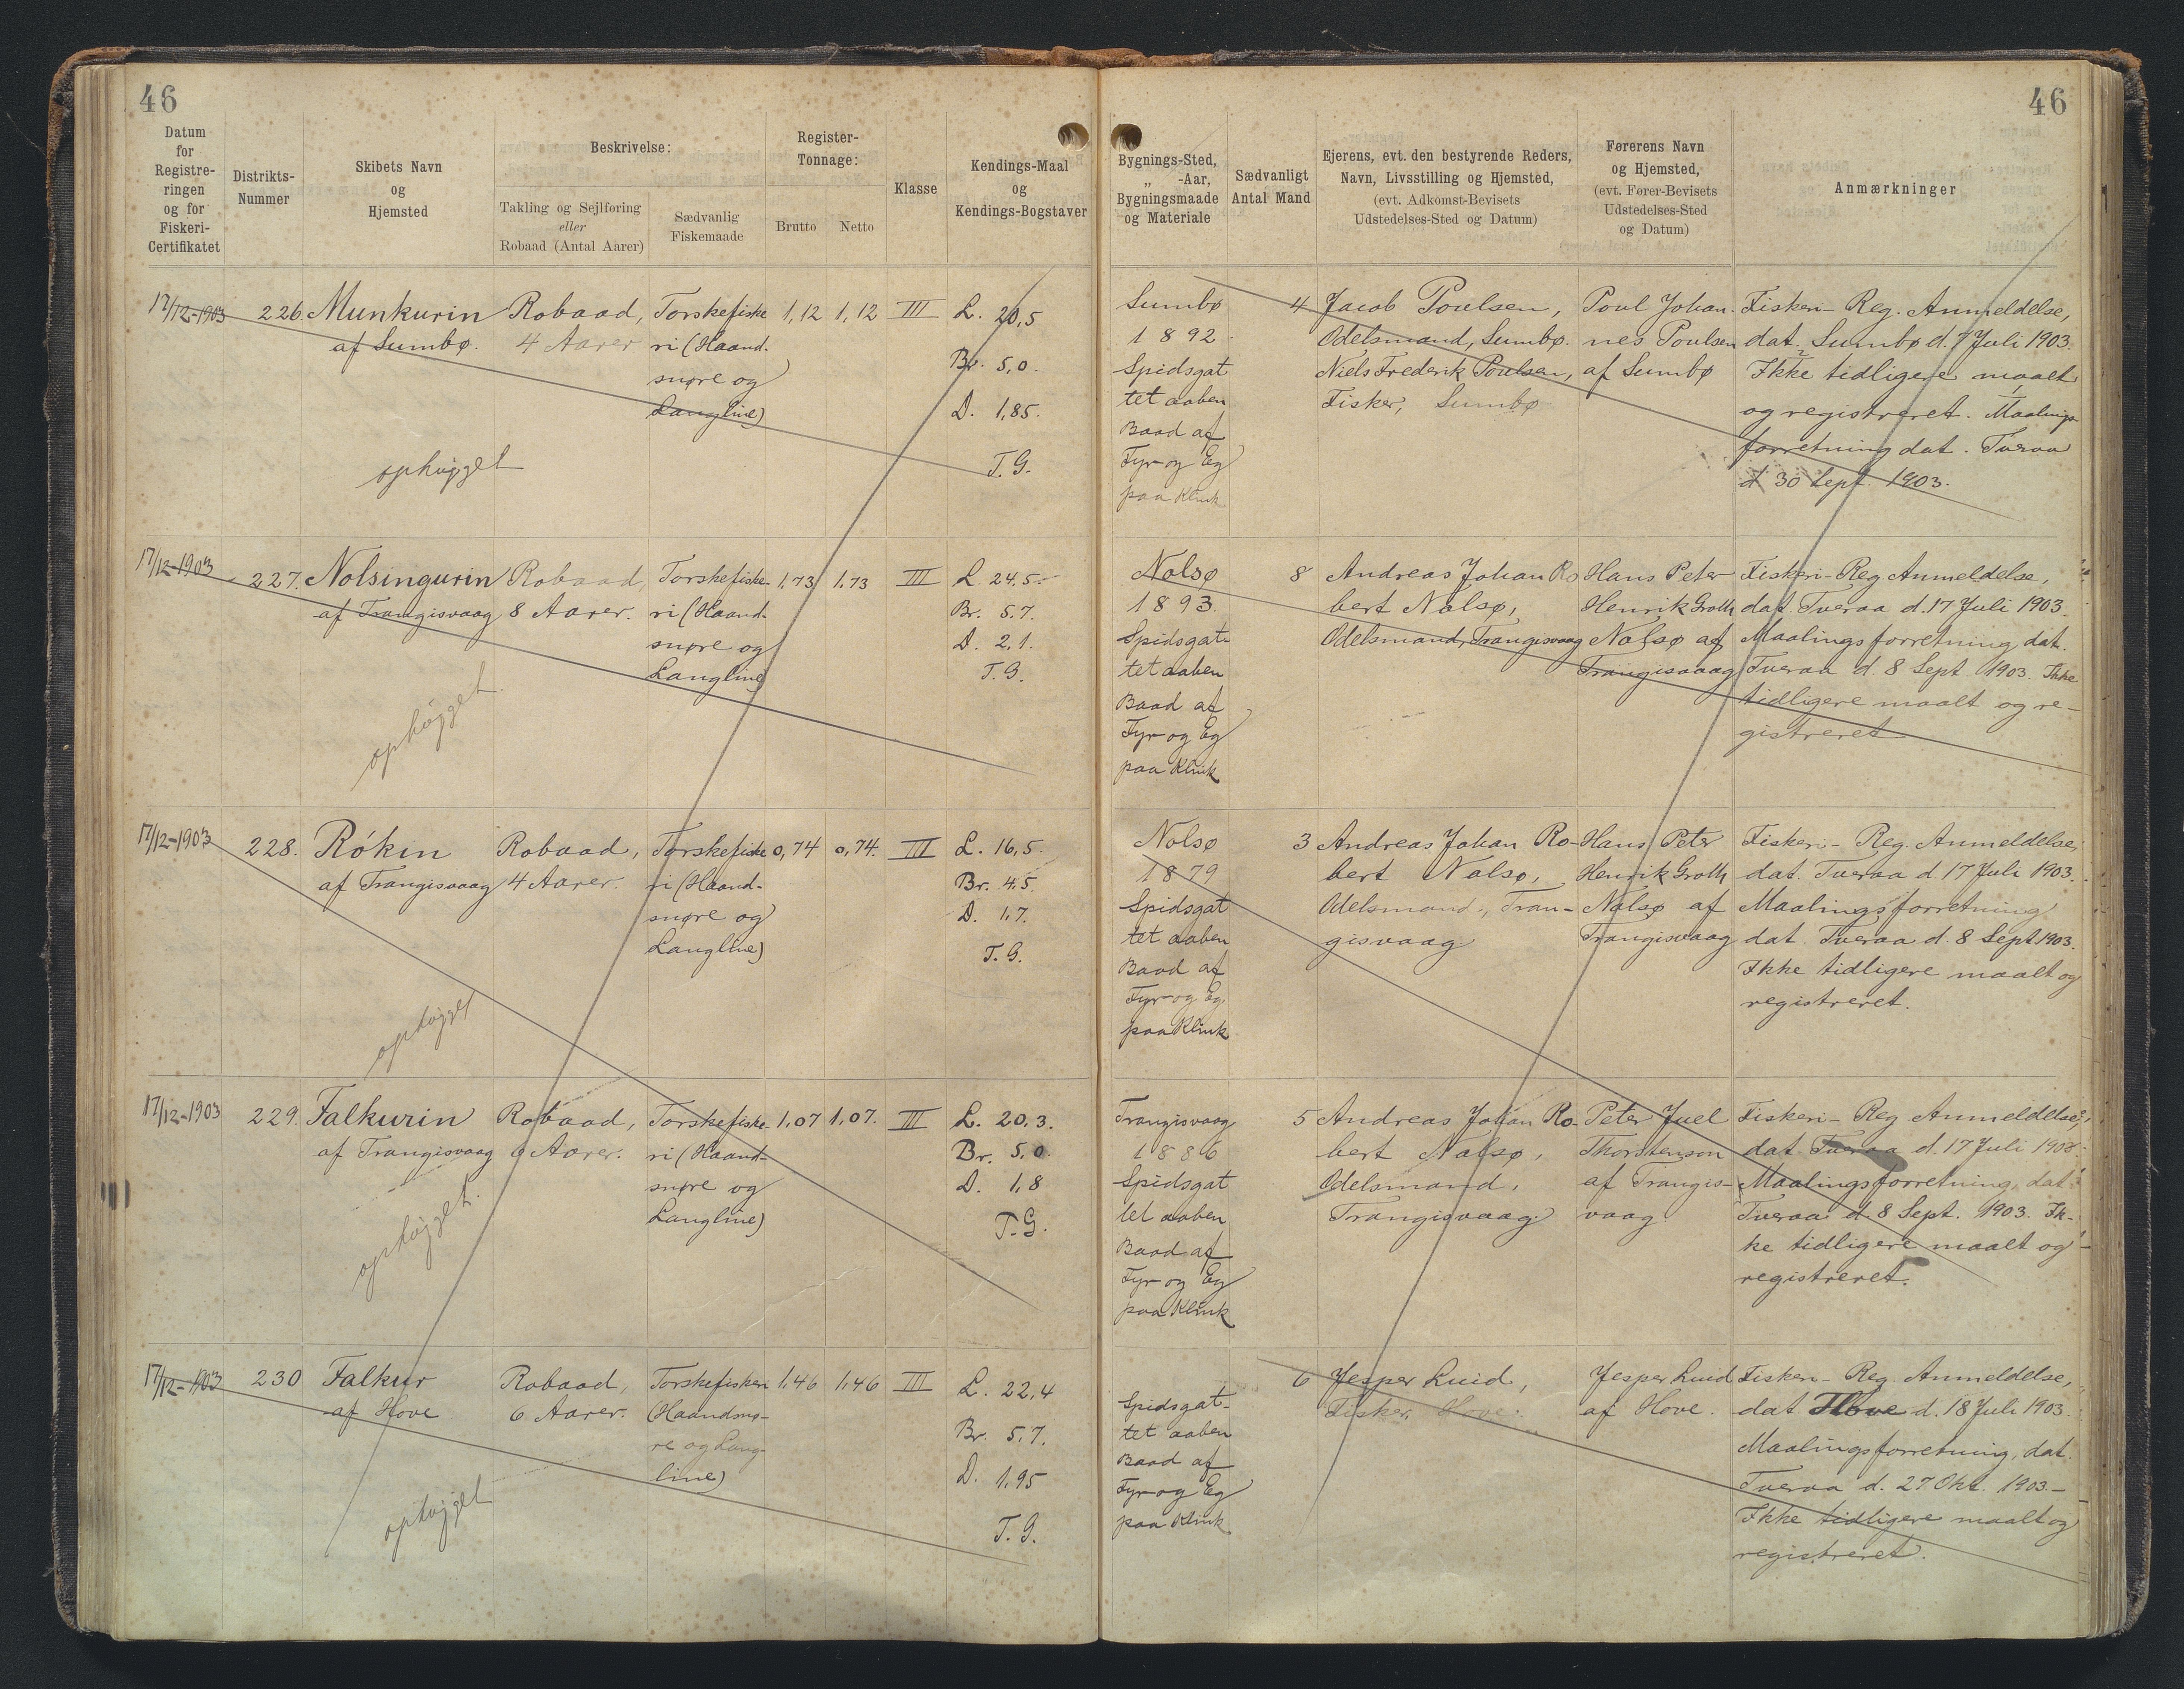 46
46
Datum
for
Registre-
ringen
og for
Fiskeri-
Certifikatet
Distrikts-
Nummer
Skibets Navn
og
Hjemsted
Beskrivelse:
Takling og Sejlføring
eller
Robaad (Antal Aarer)
Sædvanlig
Fiskemaade
Register-
Tonnage:
Brutto
Netto
Klasse
Kendings-Maal
og
Kendings-Bogstaver
Bygnings-Sted,
„ -Aar,
Bygningsmaade
og Materiale
Sædvanligt
Antal Mand
Ejerens, evt. den bestyrende Reders,
Navn, Livsstilling og Hjemsted,
(evt. Adkomst-Bevisets
Udstedelses-Sted og Datum)
Førerens Navn
og Hjemsted,
(evt. Fører-Bevisets
Udstedelses-Sted
og Datum)
Anmærkninger
17/12-1903
226.
Munkurin
af Sumbø.
ophugget
Robaad,
4 Aarer
Torskefiske
ri (Haand-
snøre og
Langline)
1,12
1,12
III
L. 20,5
Br. 5,0.
D. 1,85.
T.G.
Sumbø
1892.
Spidsgat
tet aaben
Baad af
Fyr og Eg
paa Klink
4
Jacob Poulsen,
Odelsmand, Sumbø.
Niels Frederik Poulsen,
Fisker, Sumbø
Poul Johan-
nes Poulsen
af Sumbø
Fiskeri-Reg. Anmeldelse,
dat. Sumbø d. 1 Juli 1903.
Ikke tidligere maalt
og registreret. Maalings-
forretning dat. Tveraa
d 30 Sept. 1903.
17/12-1903
227.
Nolsingurin
af Trangisvaag
ophugget
Robaad,
8 Aarer.
Torskefiske-
ri (Haand-
snøre og
Langline)
1,73
1,73
III
L. 24.5.
Br. 5.7.
D. 2,1.
T.G.
Nolsø
1893.
Spidsgat-
tet aaben
Baad af
Fyr og Eg
paa Klink
8
Andreas Johan Ro
bert Nolsø,
Odelsmand, Trangisvaag
Hans Peter
Henrik Groth
Nolsø af
Trangisvaag
Fiskeri-Reg Anmeldelse,
dat Tveraa d. 17 Juli 1903.
Maalingsforretning, dat.
Tveraa d. 8 Sept. 1903. Ikke
tidligere maalt og re-
gistreret
17/12-1903
228.
Rókin
af Trangisvaag
ophugget
Robaad,
4 Aarer.
Torskefiske
ri (Haand-
snøre og
Langline)
0,74
0,74.
III
L. 16,5.
Br. 4.5.
D. 1.7.
T.G.
Nolsø
1879
Spidsgat
tet aaben
Baad af
Fyr og Eg
paa Klink
3
Andreas Johan Ro-
bert Nolsø,
Odelsmand, Tran-
gisvaag
Hans Peter
Henrik Groth
Nolsø af
Trangisvaag
Fiskeri-Reg. Anmeldelse,
dat. Tveraa d. 17 Juli 1903.
Maalingsforretning
dat. Tveraa d. 8 Sept 1903.
Ikke tidligere maalt og
registreret.
17/12-1903
229.
Falkurin
af Trangisvaag
ophugget.
Robaad,
6 Aarer.
Torskefiske-
ri (Haand-
snøre og
Langline)
1,07
1,07.
III
L. 20,3.
Br. 5,0.
D. 1,8
T.G.
Trangisvaag
1886
Spidsgat
tet aaben
Baad af
Fyr og Eg
paa Klink
5
Andreas Johan Ro-
bert Nolsø,
Odelsmand,
Trangisvaag
Peter Juel
Thorstenson
af Trangis-
vaag
Fiskeri-Reg Anmeldelse,
dat Tveraa d. 17 Juli 1903.
Maalingsforretning, dat.
Tveraa d. 8 Sept. 1903. Ik-
ke tidligere maalt og
registreret.
17/12-1903
230
Falkur
af Hove
ophugget
Robaad,
6 Aarer.
Torskefiskeri
(Haandsnø-
re og Lang-
line)
1,46
1,46
III
L. 22,4
Br. 5,7.
D. 1,95
T.G.
Spidsgat-
tet aaben
Baad af
Fyr og Eg
paa Klink
6
Jesper Luid,
Fisker, Hove.
Jesper Luid
af Hove.
Fiskeri-Reg. Anmeldelse,
dat. Hove d. 18 Juli 1903.
Maalingsforretning, dat.
Tveraa d. 27 Okt. 1903.-
Ikke tidligere maalt og
registreret.